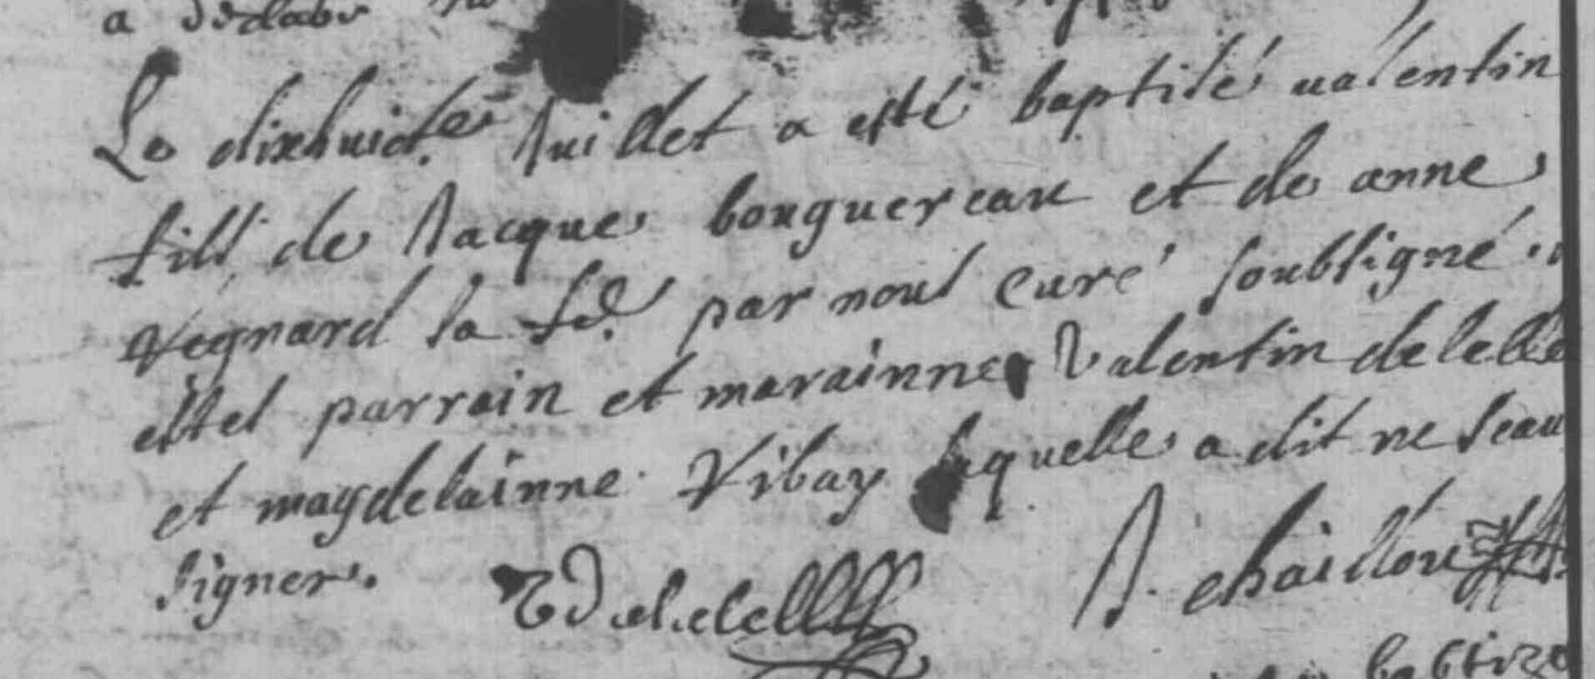 a declaré
Le dixhuict.e Juillet a esté baptisé valentin
fils de Jacque bouguereau et de anne
Regnard sa fe. par nous curé soubsigné
estes parrain et marainne Valentin delelle
et magdelainne Vibay laquelle a dit ne scau
signer.
V delelelle J. chaillou
baptize